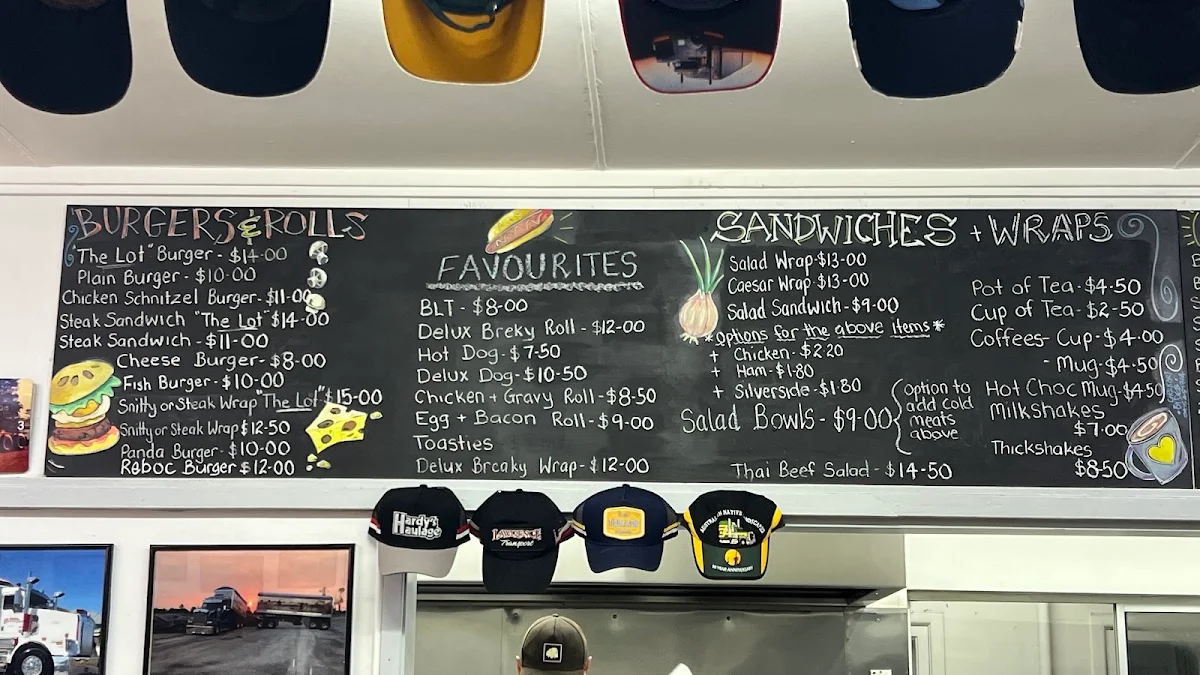 BURGERS & ROLLS
"The Lot" Burger - $14-00
Plain Burger - $10-00
Chicken Schnitzel Burger - $11-00
Steak Sandwich "The Lot" $14-00
Steak Sandwich - $11-00
Cheese Burger - $8-00
Fish Burger - $10-00
Snitty or Steak Wrap "The Lot" $15-00
Snitty or Steak Wrap $12-50
Panda Burger - $10-00
Reboc Burger $12-00
FAVOURITES
BLT - $8-00
Delux Breky Roll - $12-00
Hot Dog - $7-50
Delux Dog - $10-50
Chicken + Gravy Roll - $8-50
Egg + Bacon Roll - $9-00
Toasties
Delux Breaky Wrap - $12-00
SANDWICHES + WRAPS
Salad Wrap - $13-00
Caesar Wrap - $13-00
Salad Sandwich - $9-00
*Options for the above items*
+ Chicken - $2-20
+ Ham - $1-80
+ Silverside - $1-80
Salad Bowls - $9-00
option to
add cold
meats
above
Thai Beef Salad - $14-50
Pot of Tea - $4-50
Cup of Tea - $2-50
Coffees - Cup - $4-00
- Mug - $4-50
Hot Choc Mug - $4-50
Milkshakes
$7-00
Thickshakes
$8-50
Hardy's
Haulage
Transport
AUSTRALIAN NATIVE